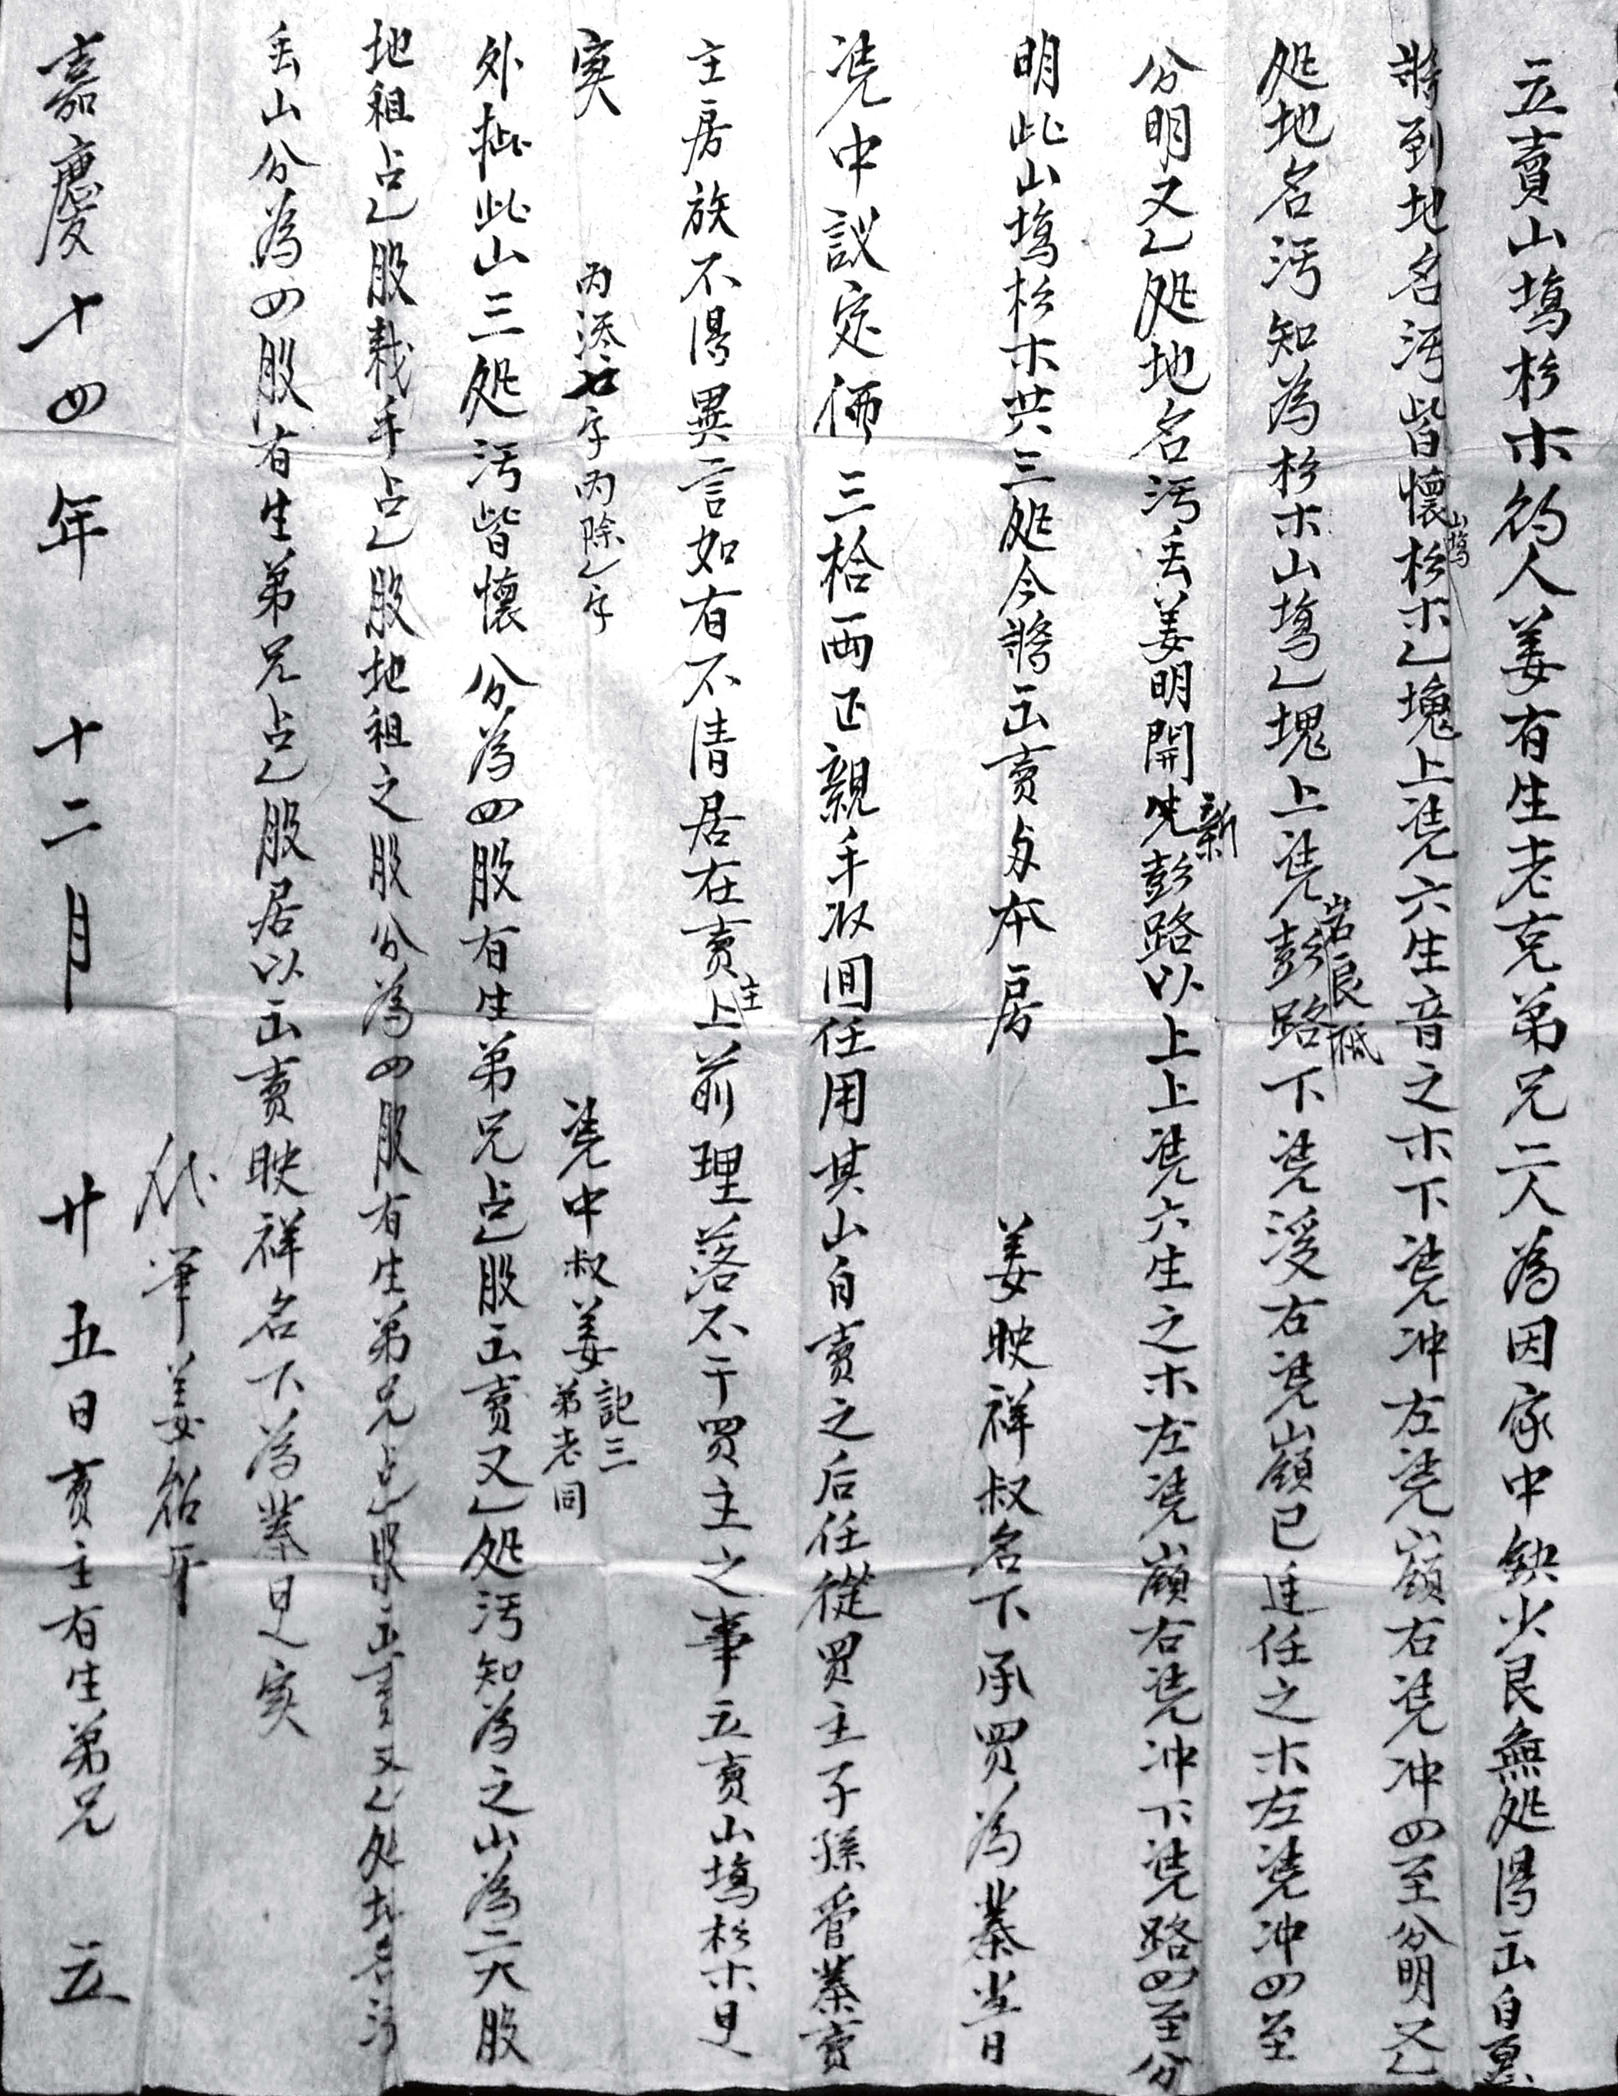 立賣山塲杉木約人姜有生老克弟兄二人為因家中缺火艮無処得出自愿
將到地名汚皆懷山塲杉木乙塊上凴六生音之木下凴冲左凴嶺右凴冲四至分明又乙
処地名汚知為杉木山塲乙塊上凴岩良砥彭路下凴溪右凴嶺已迬任之木左凴冲四至
分明又乙処地名汚丢姜明開先新彭路以上上凴六生之木左凴嶺右凴冲下凴路四至分
明此山塲杉木共三処今將出賣与本房 姜映祥叔名下承買為業當日
凴中議定価三拾両正親手收回任用其山自賣之后任從買主子孫管業賣
主房族不得異言如有不清居在賣主上前理落不干買主之事立賣山塲杉木是
实 內添七字內除乙字 凴中叔姜記三 弟老同
外批此山三処汚皆懷分為四股有生弟兄占乙股出賣又乙処汚知為之山為二大股
地租占乙股栽手占乙股地租之股分為四股有生弟兄占乙股出賣又乙処地名汚
丢山分為四股有生弟兄占乙股居以出賣映祥名下為業是实
代筆姜紹牙
嘉慶十四年十二月廿五日賣主有生弟兄 立